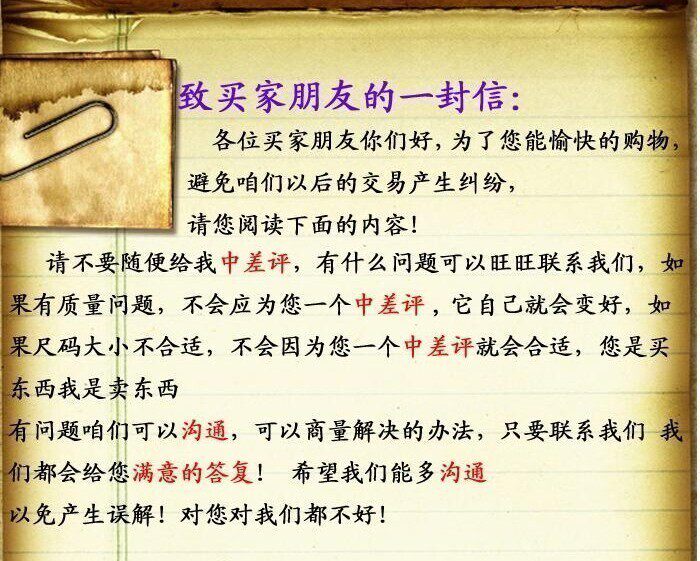 致买家朋友的一封信：
各位买家朋友你们好，为了您能愉快的购物，
避免咱们以后的交易产生纠纷，
请您阅读下面的内容！
请不要随便给我中差评，有什么问题可以旺旺联系我们，如
果有质量问题，不会应为您一个中差评，它自己就会变好，如
果尺码大小不合适，不会因为您一个中差评就会合适，您是买
东西我是卖东西
有问题咱们可以沟通，可以商量解决的办法，只要联系我们 我
们都会给您满意的答复！ 希望我们能多沟通
以免产生误解！对您对我们都不好！